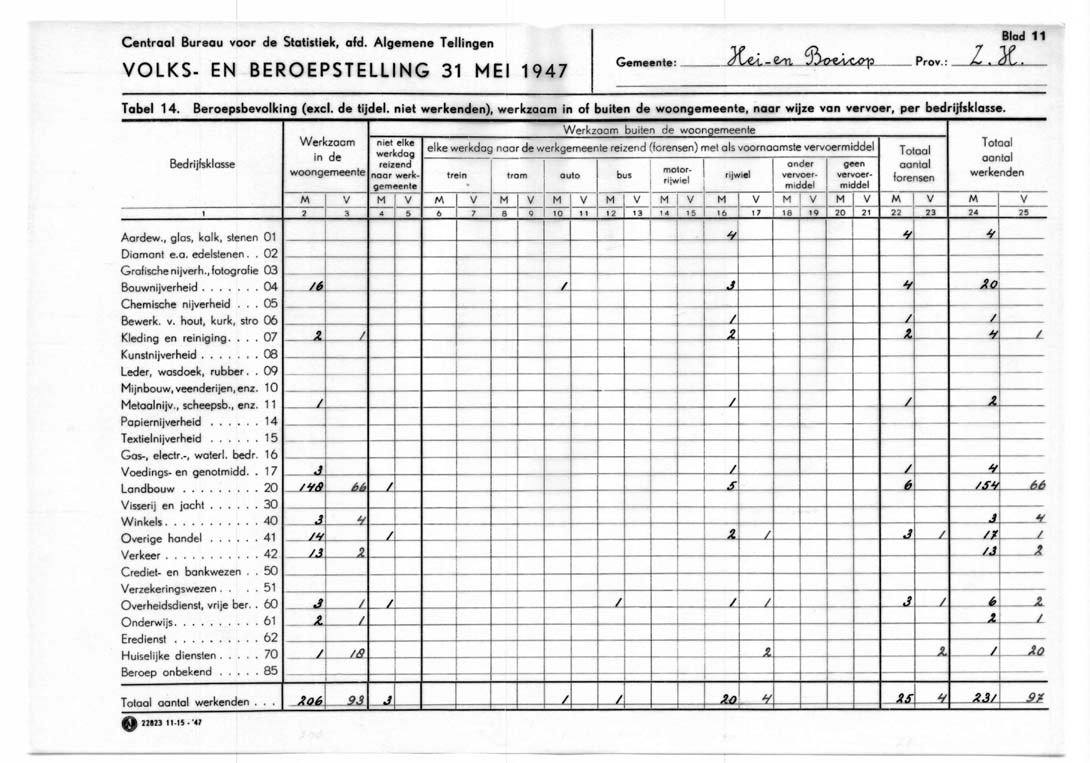 Blad 11
Centraal Bureau voor de Statistiek, afd. Algemene Tellingen
VOLKS- EN BEROEPSTELLING 31 MEI 1947
Gemeente: Hei- en Boeicop Prov.: Z.H.
Tabel 14. Beroepsbevolking (excl. de tijdel. niet werkenden), werkzaam in of buiten de woongemeente, naar wijze van vervoer, per bedrijfsklasse.
Bedrijfsklasse
Werkzaam in de woongemeente
Werkzaam buiten de woongemeente
niet elke werkdag reizend naar werkgemeente
elke werkdag naar de werkgemeente reizend (forensen) met als voornaamste vervoermiddel
trein tram auto bus motor-rijwiel rijwiel ander vervoer-middel geen vervoer-middel
Totaal aantal forensen
Totaal aantal werkenden
M V M V M V M V M V M V M V M V M V M V M V M V
1 2 3 4 5 6 7 8 9 10 11 12 13 14 15 16 17 18 19 20 21 22 23 24 25
Aardew., glas, kalk, stenen 01 4 4 4
Diamant e.a. edelstenen . . 02
Grafische nijverh., fotografie 03
Bouwnijverheid . . . . . . . 04 16 1 3 4 20
Chemische nijverheid . . . 05
Bewerk. v. hout, kurk, stro 06 1 1 1
Kleding en reiniging. . . . 07 2 1 2 2 4 1
Kunstnijverheid . . . . . . . 08
Leder, wasdoek, rubber. . 09
Mijnbouw, veenderijen, enz. 10
Metaalnijv., scheepsb., enz. 11 1 1 1 2
Papiernijverheid . . . . . . 14
Textielnijverheid . . . . . . 15
Gas-, electr.-, waterl. bedr. 16
Voedings- en genotmidd. . 17 3 1 1 4
Landbouw . . . . . . . . . 20 148 66 1 5 6 154 66
Visserij en jacht . . . . . . 30
Winkels . . . . . . . . . . . 40 3 4 3 4
Overige handel . . . . . . 41 14 1 2 1 3 1 17 1
Verkeer . . . . . . . . . . . 42 13 2 13 2
Crediet- en bankwezen . . 50
Verzekeringswezen . . . . 51
Overheidsdienst, vrije ber. . 60 3 1 1 1 1 1 3 1 6 2
Onderwijs. . . . . . . . . . 61 2 1 2 1
Eredienst . . . . . . . . . . 62
Huiselijke diensten . . . . . 70 1 18 2 2 1 20
Beroep onbekend . . . . . 85
Totaal aantal werkenden . . . 206 93 3 1 1 20 4 25 4 231 97
22823 11-15 - '47